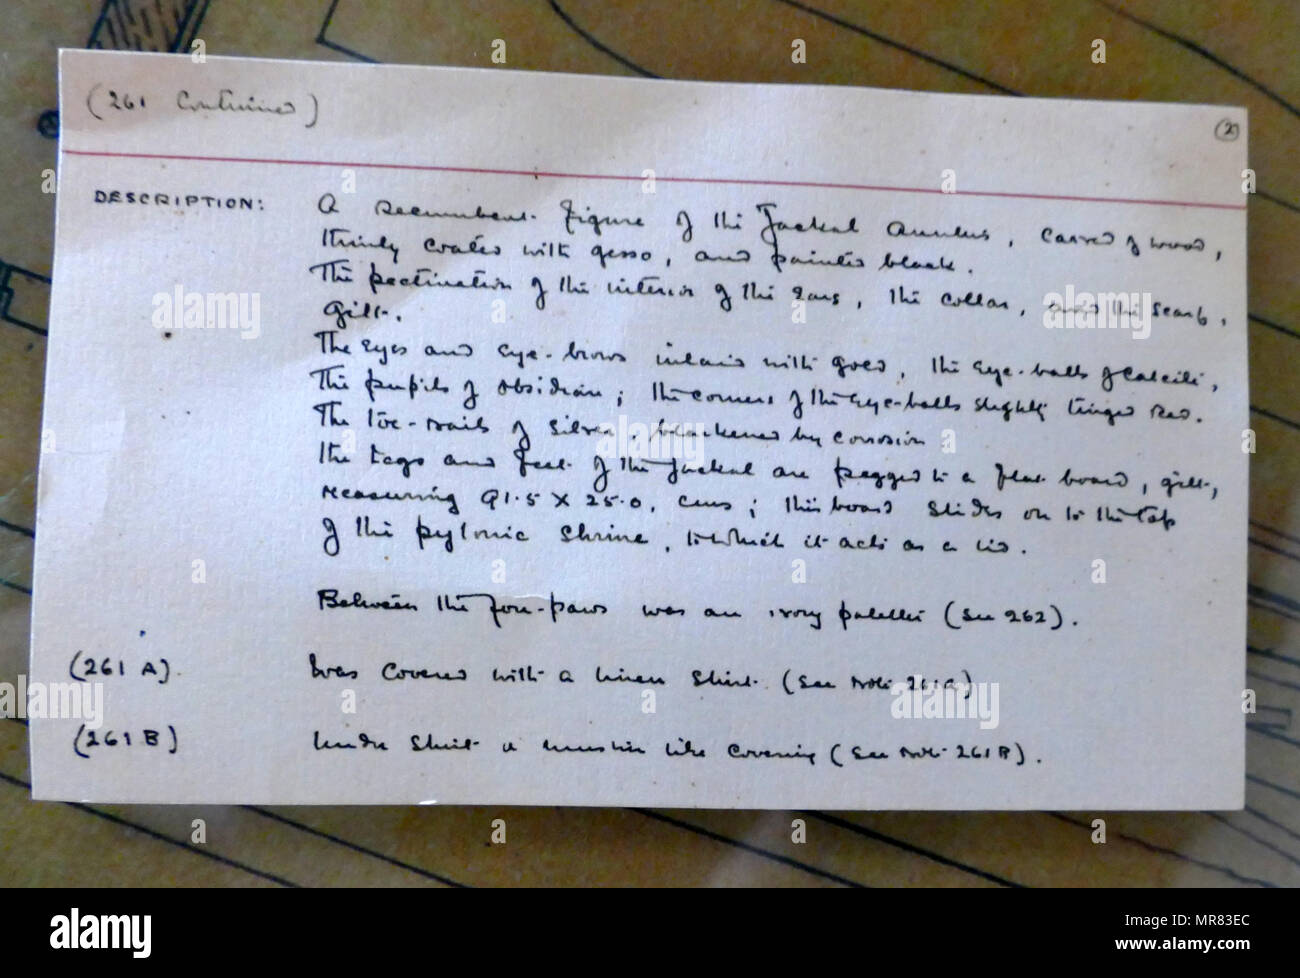 (261 Continued)
(2)
DESCRIPTION: A recumbent figure of the Jackal Anubis, carved of wood,
thinly coated with gesso, and painted black.
The pectination of the interior of the ears, the collar, and the scarf,
gilt.
The eyes and eye-brows inlaid with gold, the eye-balls of calcite,
the pupils of obsidian; the corners of the eye-balls slightly tinged red.
The toe-nails of silver, blackened by corrosion
The legs and feet of the Jackal are pegged to a flat board, gilt,
measuring 91.5 x 25.0. cms; this board slides on to the top
of the pylonic shrine, to which it acts as a lid.
Between the fore-paws was an ivory palette (See 262).
(261 A) Was covered with a linen shirt (See Note 261A)
(261 B) Under shirt a muslin like covering (See Note 261B).
alamy
a
alamy
Image ID: MR83EC
www.alamy.com